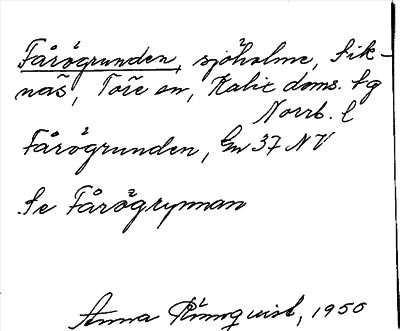 Fårögrunden, sjöholme, Sik-
näs, Töre sn, Kalix doms. lg
Norrb. l
Fårögrunden, Gm 37 NV
Se Fårögrynnan
Anna Rönnquist, 1950